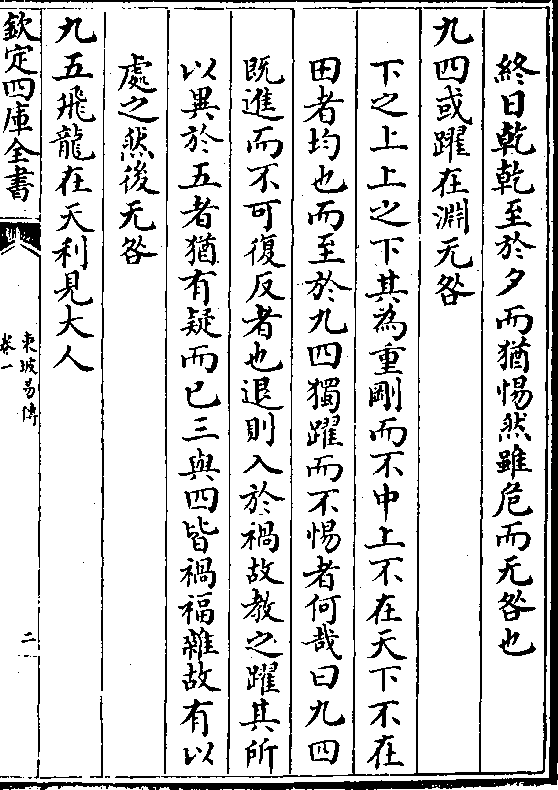 終日乾乾至於夕而猶惕然雖危而无咎也
九四或躍在淵无咎
下之上上之下其為重剛而不中上不在天下不在
田者均也而至於九四獨躍而不惕者何哉曰九四
既進而不可復反者也退則入於禍故教之躍其所
以異於五者猶有疑而已三與四皆禍福雜故有以
處之然後无咎
九五飛龍在天利見大人
欽定四庫全書
東坡易傳
卷一
二